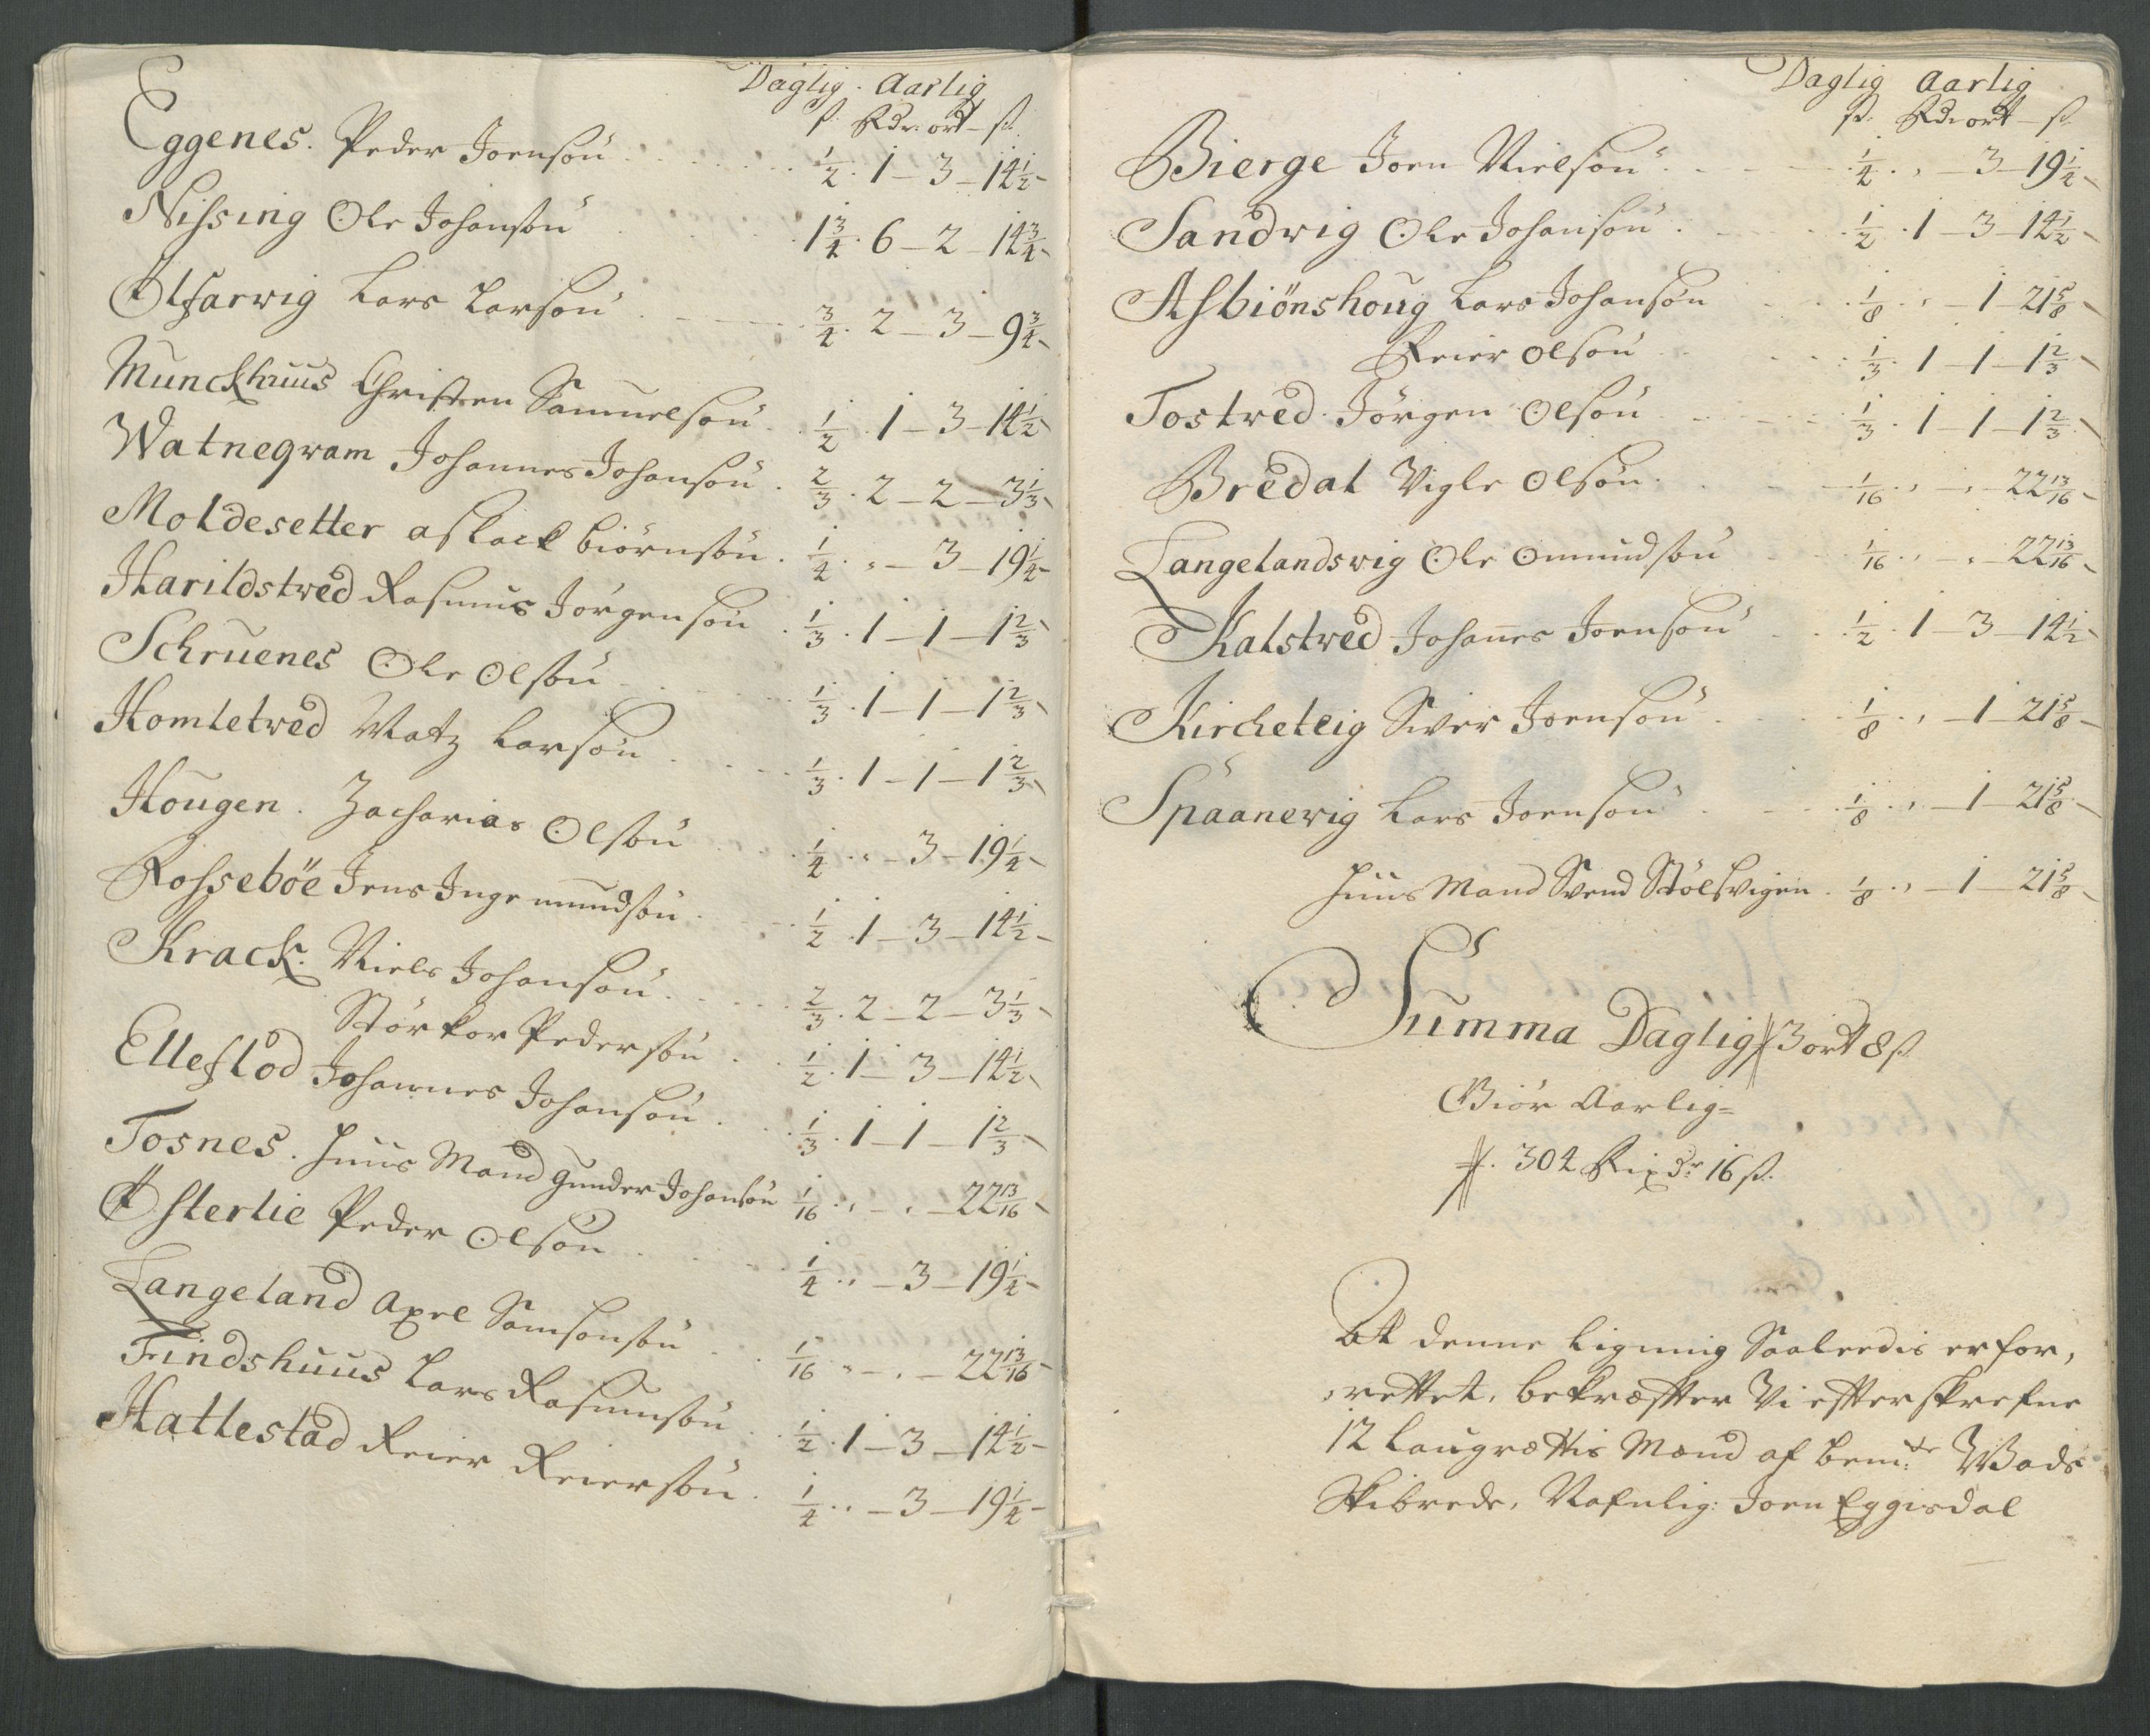 Daglig. Aarlig
ß. Rdr. ort – ß.
Eggenes. Peder Joensøn . . . ½ . 1 – 3 – 14½ –
Nissing Ole Johansøn . . . 1¾ . 6 – 2 – 14¾ –
Ølfarwig Lars Larsøn . . . ¾ . 2 – 3 – 9¾ –
Munckhuus Christen Samuelsøn . ½ . 1 – 3 – 14½
Watnegram Johannes Johansøn . ⅔ . 2 – 2 – 3⅓
Moldesetter aslack biörnsøn . ¼ . „ – 3 – 19¼ –
Harildstved Rasmus Jörgensøn . ⅓ . 1 – 1 – 1⅔
Schruenes Ole Olsøn . . . ⅓ . 1 – 1 – 1⅔
Homletved Matz Larsøn . . . ⅓ . 1 – 1 – 1⅔
Hougen. Zacharias Olsøn . . . ¼ . „ – 3 – 19¼ –
Rossebøe Jens Ingemundsøn . . . ½ . 1 – 3 – 14½ –
Krack. Niels Johansøn . . . ⅔ . 2 – 2 – 3⅓ –
Störkor Pedersøn . . ½ . 1 – 3 – 14½
Elleflod Johannes Johansøn . . ⅓ . 1 – 1 – 1⅔ –
Tosnes. Huus Mand gunder Johansøn 1/16 . „ – „ – 22 13/16
Østerlie Peder Olsøn . . . ¼ . „ – 3 – 19¼ –
Langeland Axel Samsonsøn . . 1/16 „ – „ – 22 13/16 –
Findshuus Lars Rasmusøn . . ½ . 1 – 3 – 14½ –
Hattestad Reier Reiersøn . ¼ . „ – 3 – 19¼ –
Daglig Aarlig
ß. Rdr. ort – ß
Bierge Joen Nielsøn . . . ¼ . „ – 3 – 19¼
Sandvig Ole Johansøn . . . ½ . 1 – 3 – 14½ –
Asbiönshoug Lars Johansøn . . ⅛ . „ – 1 – 21⅝ –
Reier Olsøn . . . ⅓ . 1 – 1 – 1⅔
Tostved Jörgen Olsøn . . . ⅓ . 1 – 1 – 1⅔
Bredal Vigle Olsøn . . . 1/16 . „ – „ 22 13/16 –
Langelandsvig Ole Omundsøn . . 1/16 „ – „ 22 13/16
Kalstved Johannes Joensøn . . ½ . 1 – 3 – 14½
Kircheteig Siver Joensøn . . . ⅛ . „ – 1 – 21⅝ –
Spaanevig Lars Joensøn . . . ⅛ . „ – 1 – 21⅝ –
Huus Mand Svend Stölsvigen . ⅛ . „ – 1 – 21⅝
Summa Daglig 3 ort 8 ß
Giör Aarlig =
304 Rix dr 16 ß.
At denne Ligning Saaledis er for,
rettet, bekræffter Vi effterskrefne
12 Laugrættis Mænd af bemte Wads
Skibrede, Nafnlig: Joen Eggisdal